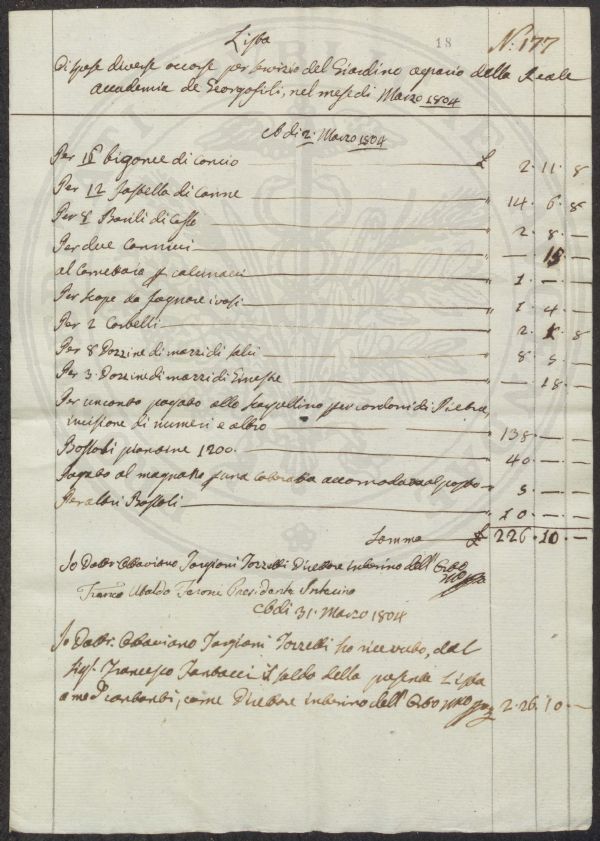 Lista
18
N.º 177
Dispese diverse occorse per servizio del Giardino agrario della Reale
Accademia de Georgofili, nel mese di Marzo 1804
Adi 2. Marzo 1804
Per bigonce di concio £ 2. 11. 8
Per 12 fastella di canne " 14. 6. 8
Per 8 Barili di " 2. 8. —
Per due " — 15 —
al " 1. — —
Per scope da " 1. 4. —
Per 2 Corbelli " 2. 8
Per 8 Dozzine di mazzi di salci " 8
Per 3. Dozzine di mazzi di Ginestre " — 18. —
Per un conto pagato allo scarpellino per cordoni di Pietra,
incisione di numeri e altro " 138. — —
Bossoli piantine 1200. " 40 — —
Pagato al magnano una accomodata al posto " — —
Per altri Bossoli " 10. — —
Somma £ 226. 10 —
Io Dottr. Ottaviano Targioni Tozzetti Direttore interino dell' Orto
Franco Ubaldo Ferone Presidente Interino
Adi 31. Marzo 1804
Io Dottr. Ottaviano Targioni Tozzetti ho ricevuto, dal
Sigr. Francesco il saldo della presente Lista
contanti, come Direttore interino dell' Orto 2. 26. 10 —